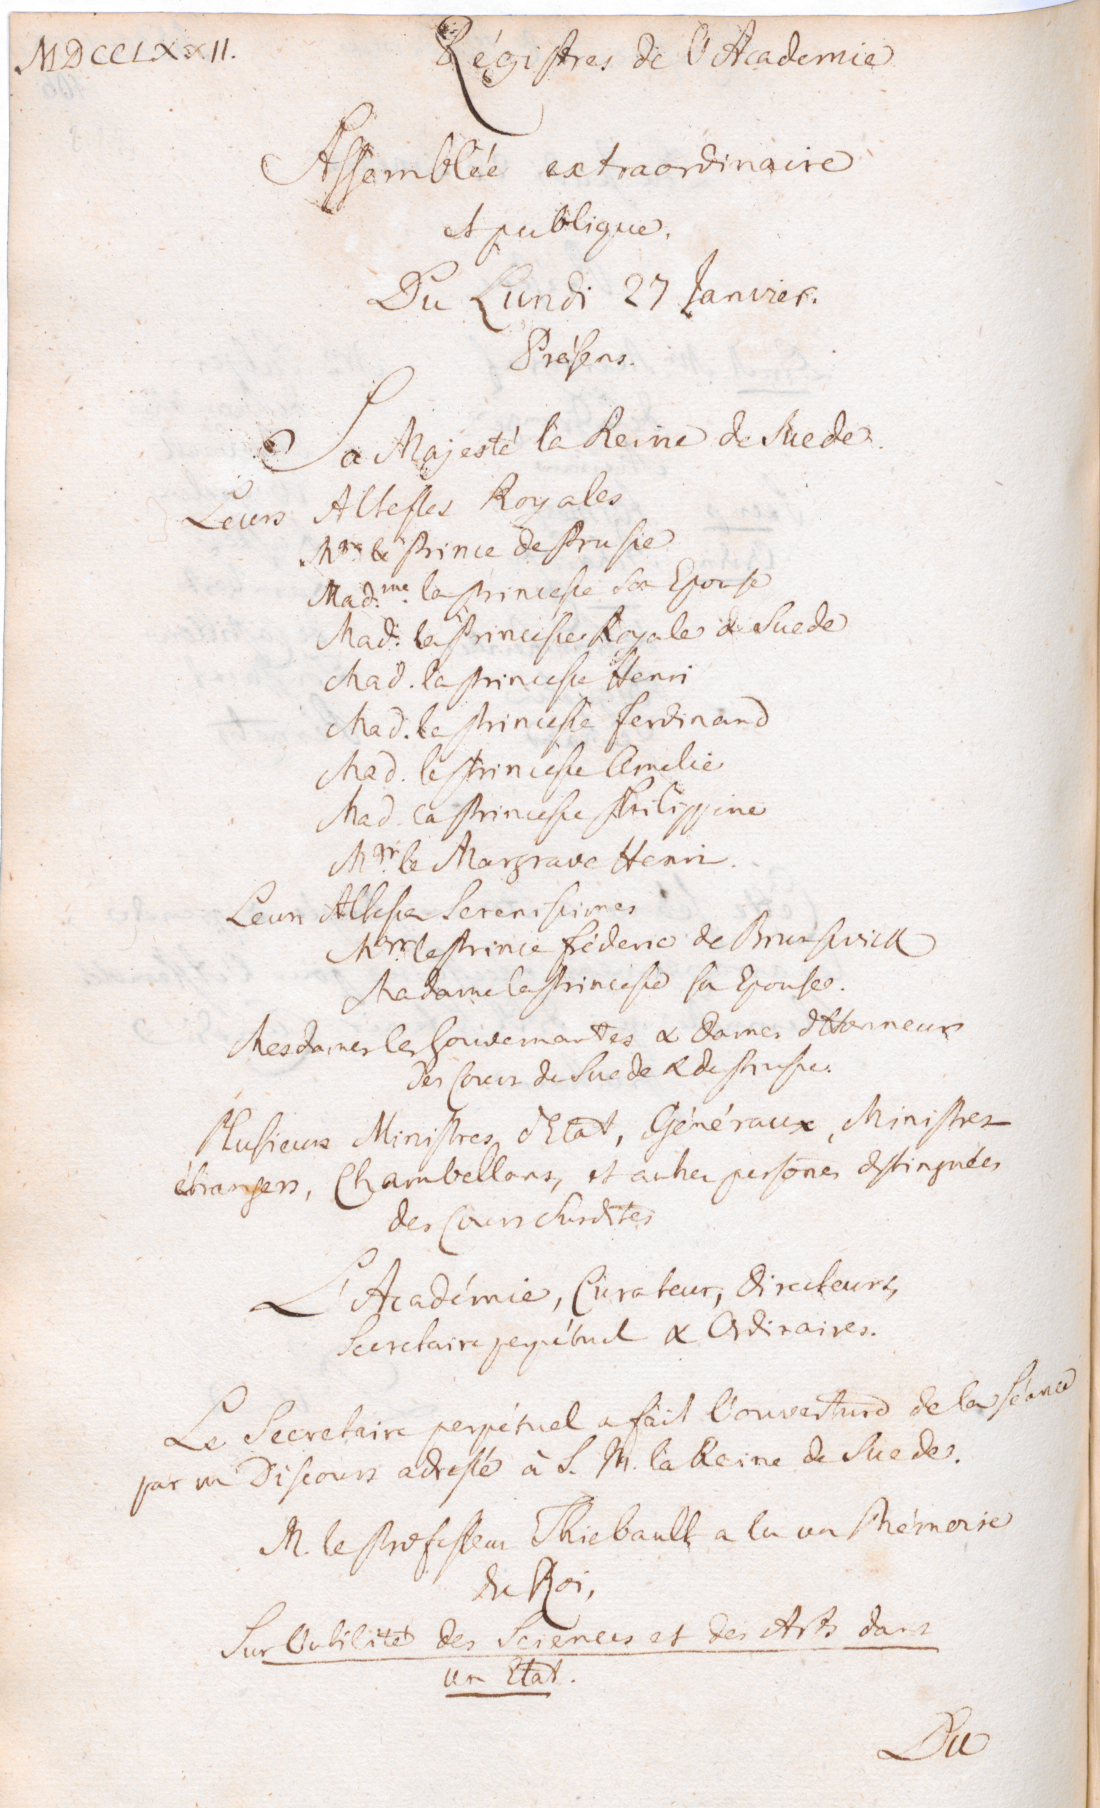 MDCCLXXII.
Régistres de l'Academie
Assemblée extraordinaire
et publique.
Du Lundi 27 Janvier.
Présens.
Sa Majesté la Reine de Suede.
Leurs Altesses Royales
Mgr. le Prince de Prusse
Mad.me la Princesse son Epouse
Mad. la Princesse Royale de Suede
Mad. la Princesse Henri
Mad. la Princesse Ferdinand
Mad. la Princesse Amelie
Mad. la Princesse Philippine
Mgr. le Margrave Henri.
Leurs Altesses Serenissimes
Mgr. le Prince Fréderic de Brunswick
Madame la Princesse sa Epouse.
Mesdames les Gouvernantes & Dames d'Honneur
des Cours de Suede & de Prusse.
Plusieurs Ministres d'Etat, Généraux, Ministres
étrangers, Chambellans, et autres persones distinguées
des Cours susdites
L'Académie, Curateur, Directeurs,
Secretaire perpétuel & Ordinaires.
Le Secretaire perpétuel a fait l'ouverture de la Séance
par un Discours adressé à S. M. la Reine de Suede.
M. le Professeur Thiebault a lu un Mémoire
du Roi,
Sur l'utilité des Sciences et des Arts dans
un Etat.
Du